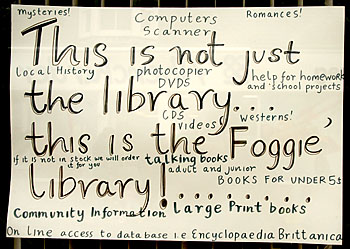 mysteries! Computers Romances!
Scanner
This is not just
Local History photocopier help for homework
DVDS and school projects
the library...
CDS Westerns!
videos
this is the Foggie,
If it is not in stock we will order talking books
it for you adult and junior
library!........ BOOKS FOR UNDER 5s
Community Information Large Print books
On line access to database i.e Encyclopaedia Brittanica